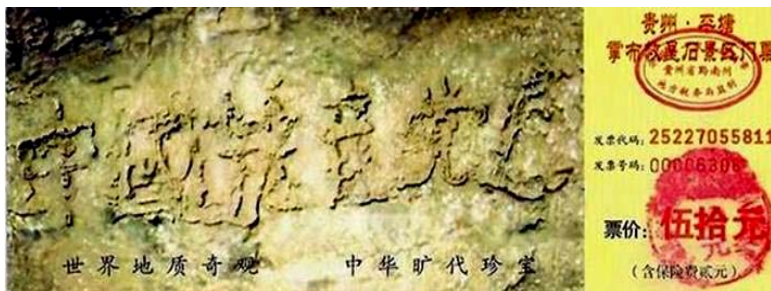 中國共产党亡
世界地质奇观 中华旷代珍宝
贵州·平塘
掌布救星石景区门票
贵州省黔南州
地方税务局监制
发票代码：25227055811
发票号码：
票价：伍拾元
（含保险费贰元）